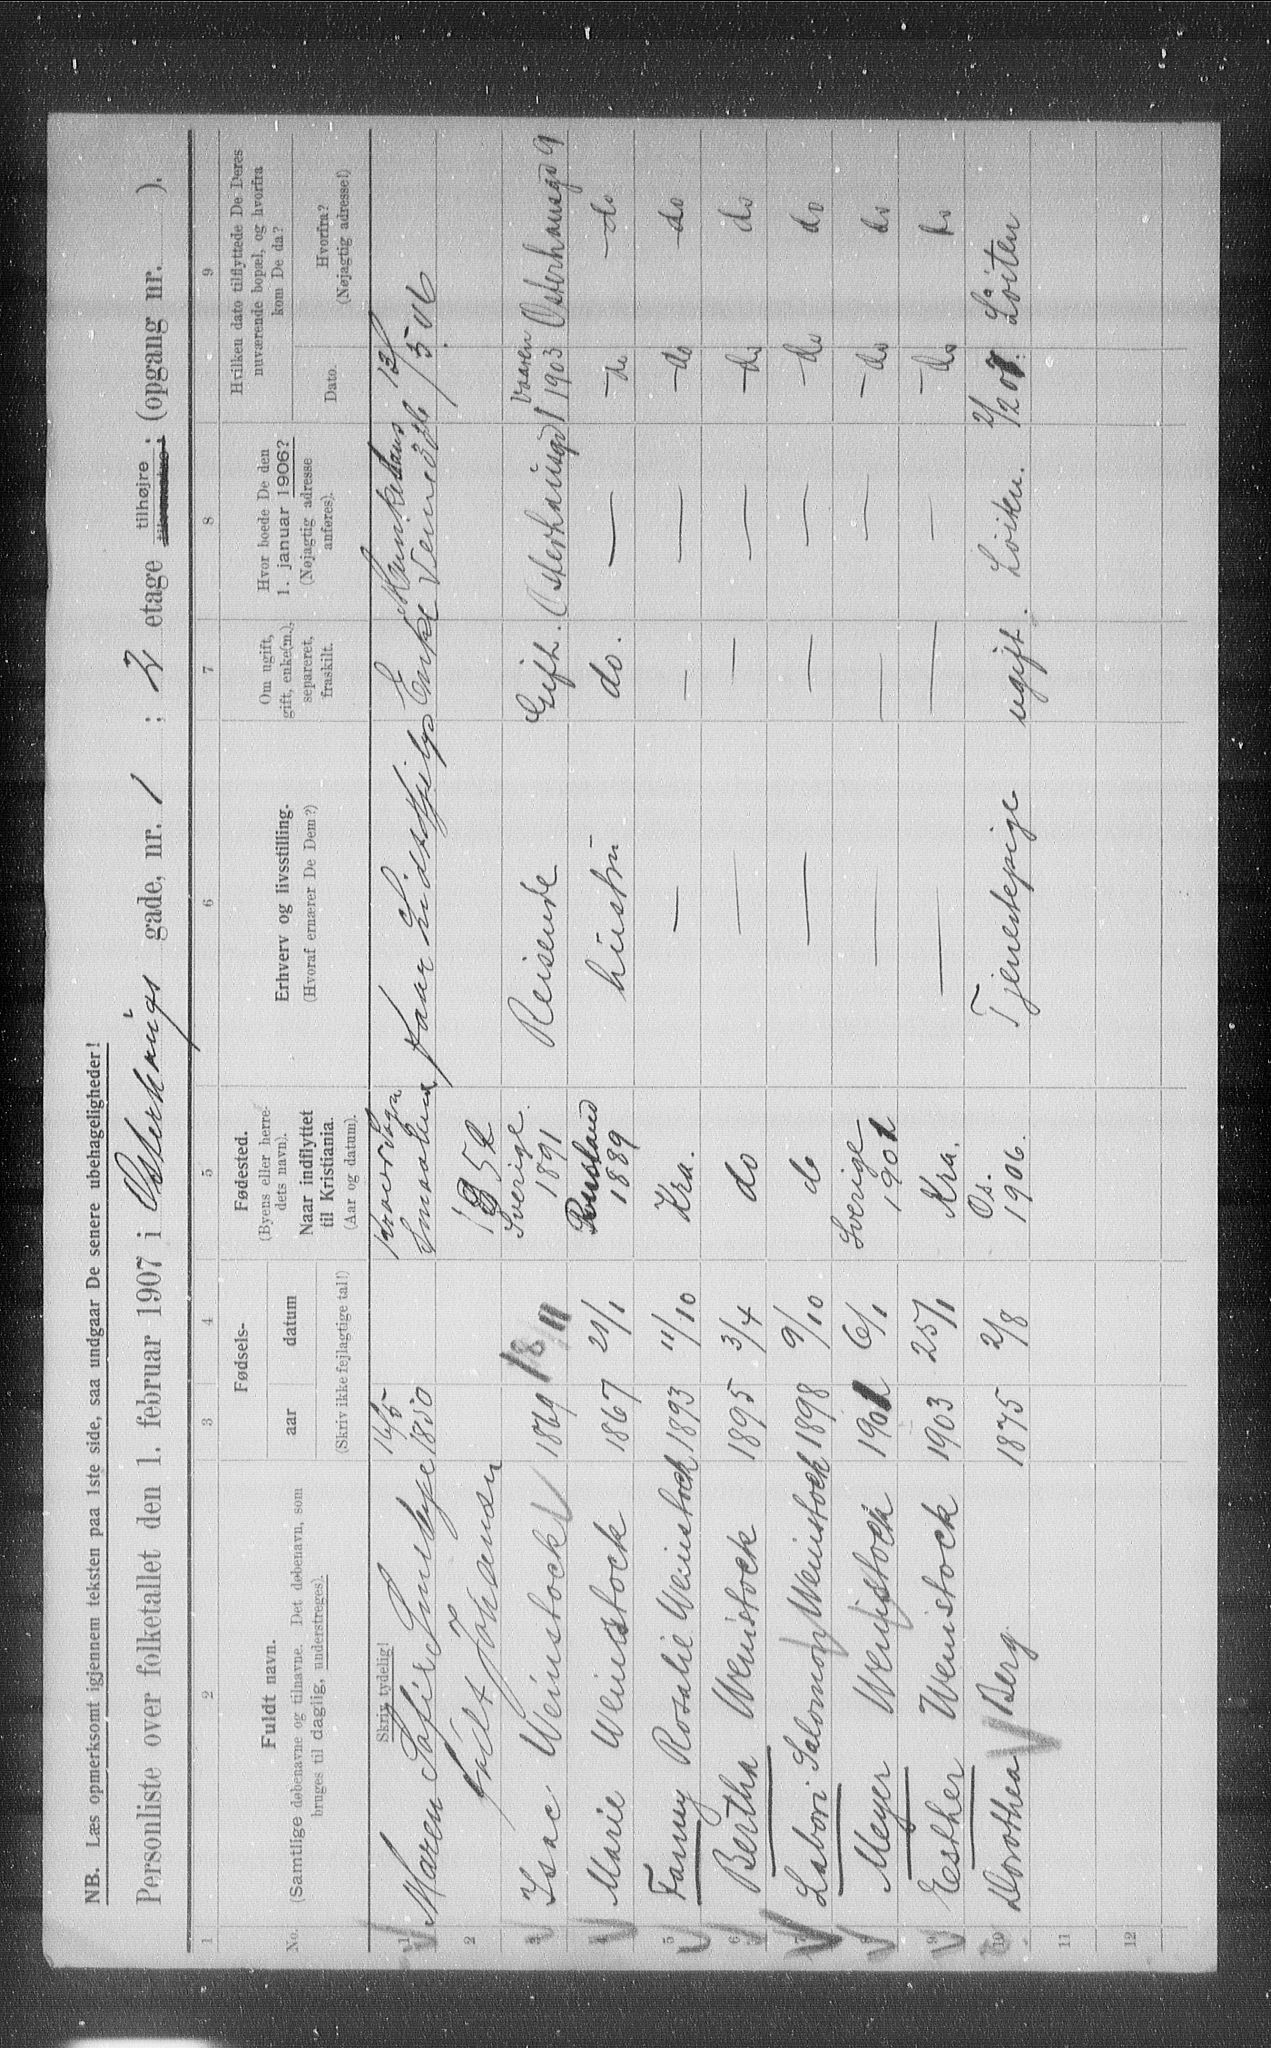 NB. Læs opmerksomt igjennem teksten paa 1ste side, saa undgaar De senere ubehageligheder!
Personliste over folketallet den 1. februar 1907 i Osterhaugs gade, nr. 1 ; 2 etage tilhøjre ; (opgang nr. ).
1 2 3 4 5 6 7 8 9
No.
Fuldt navn.
(Samtlige døbenavne og tilnavne. Det døbenavn, som
bruges til daglig, understreges).
Fødsels-
aar datum
(Skriv ikke fejlagtige tal!)
Fødested.
(Byens eller herre-
dets navn).
Naar indflyttet
til Kristiania.
(Aar og datum).
Erhverv og livsstilling.
(Hvoraf ernærer De Dem?)
Om ugift,
gift, enke(m.),
separeret,
fraskilt.
Hvor boede De den
1. januar 1906?
(Nøjagtig adresse
anføres).
Hvilken dato tilflyttede De Deres
nuværende bopæl, og hvorfra
kom De da?
Dato.
Hvorfra?
(Nøjagtig adresse!)
Skriv tydelig!
1 Maren Sofie 16/5 1850 Enke
2 født Johansen
3 Isac Weinstock 1869 18 11 Sverige. 1891 Reisende Gift. Osterhausgd 1 Vaaren 1903 Osterhausgd 9
4 Marie Weinstock 1867 21/1 Rusland 1889 hustru do. — -do -do
5 Fanny Rosalie Weinstock 1893 11/10 Kra. — — — -do -do
6 Bertha Weinstock 1895 3/4 do — — — -do do
7 Labori Salomon Weinstock 1898 9/10 do — — — -do do
8 Meyer Weinstock 1901 6/1 Sverige 1901 — — — -do do
9 Esther Weinstock 1903 25/1 Kra. — — — -do do
10 Dorothea Berg 1875 2/8 Os. 1906. Tjenestepige ugift. Löiten. 2/2 07. Löiten
11
12